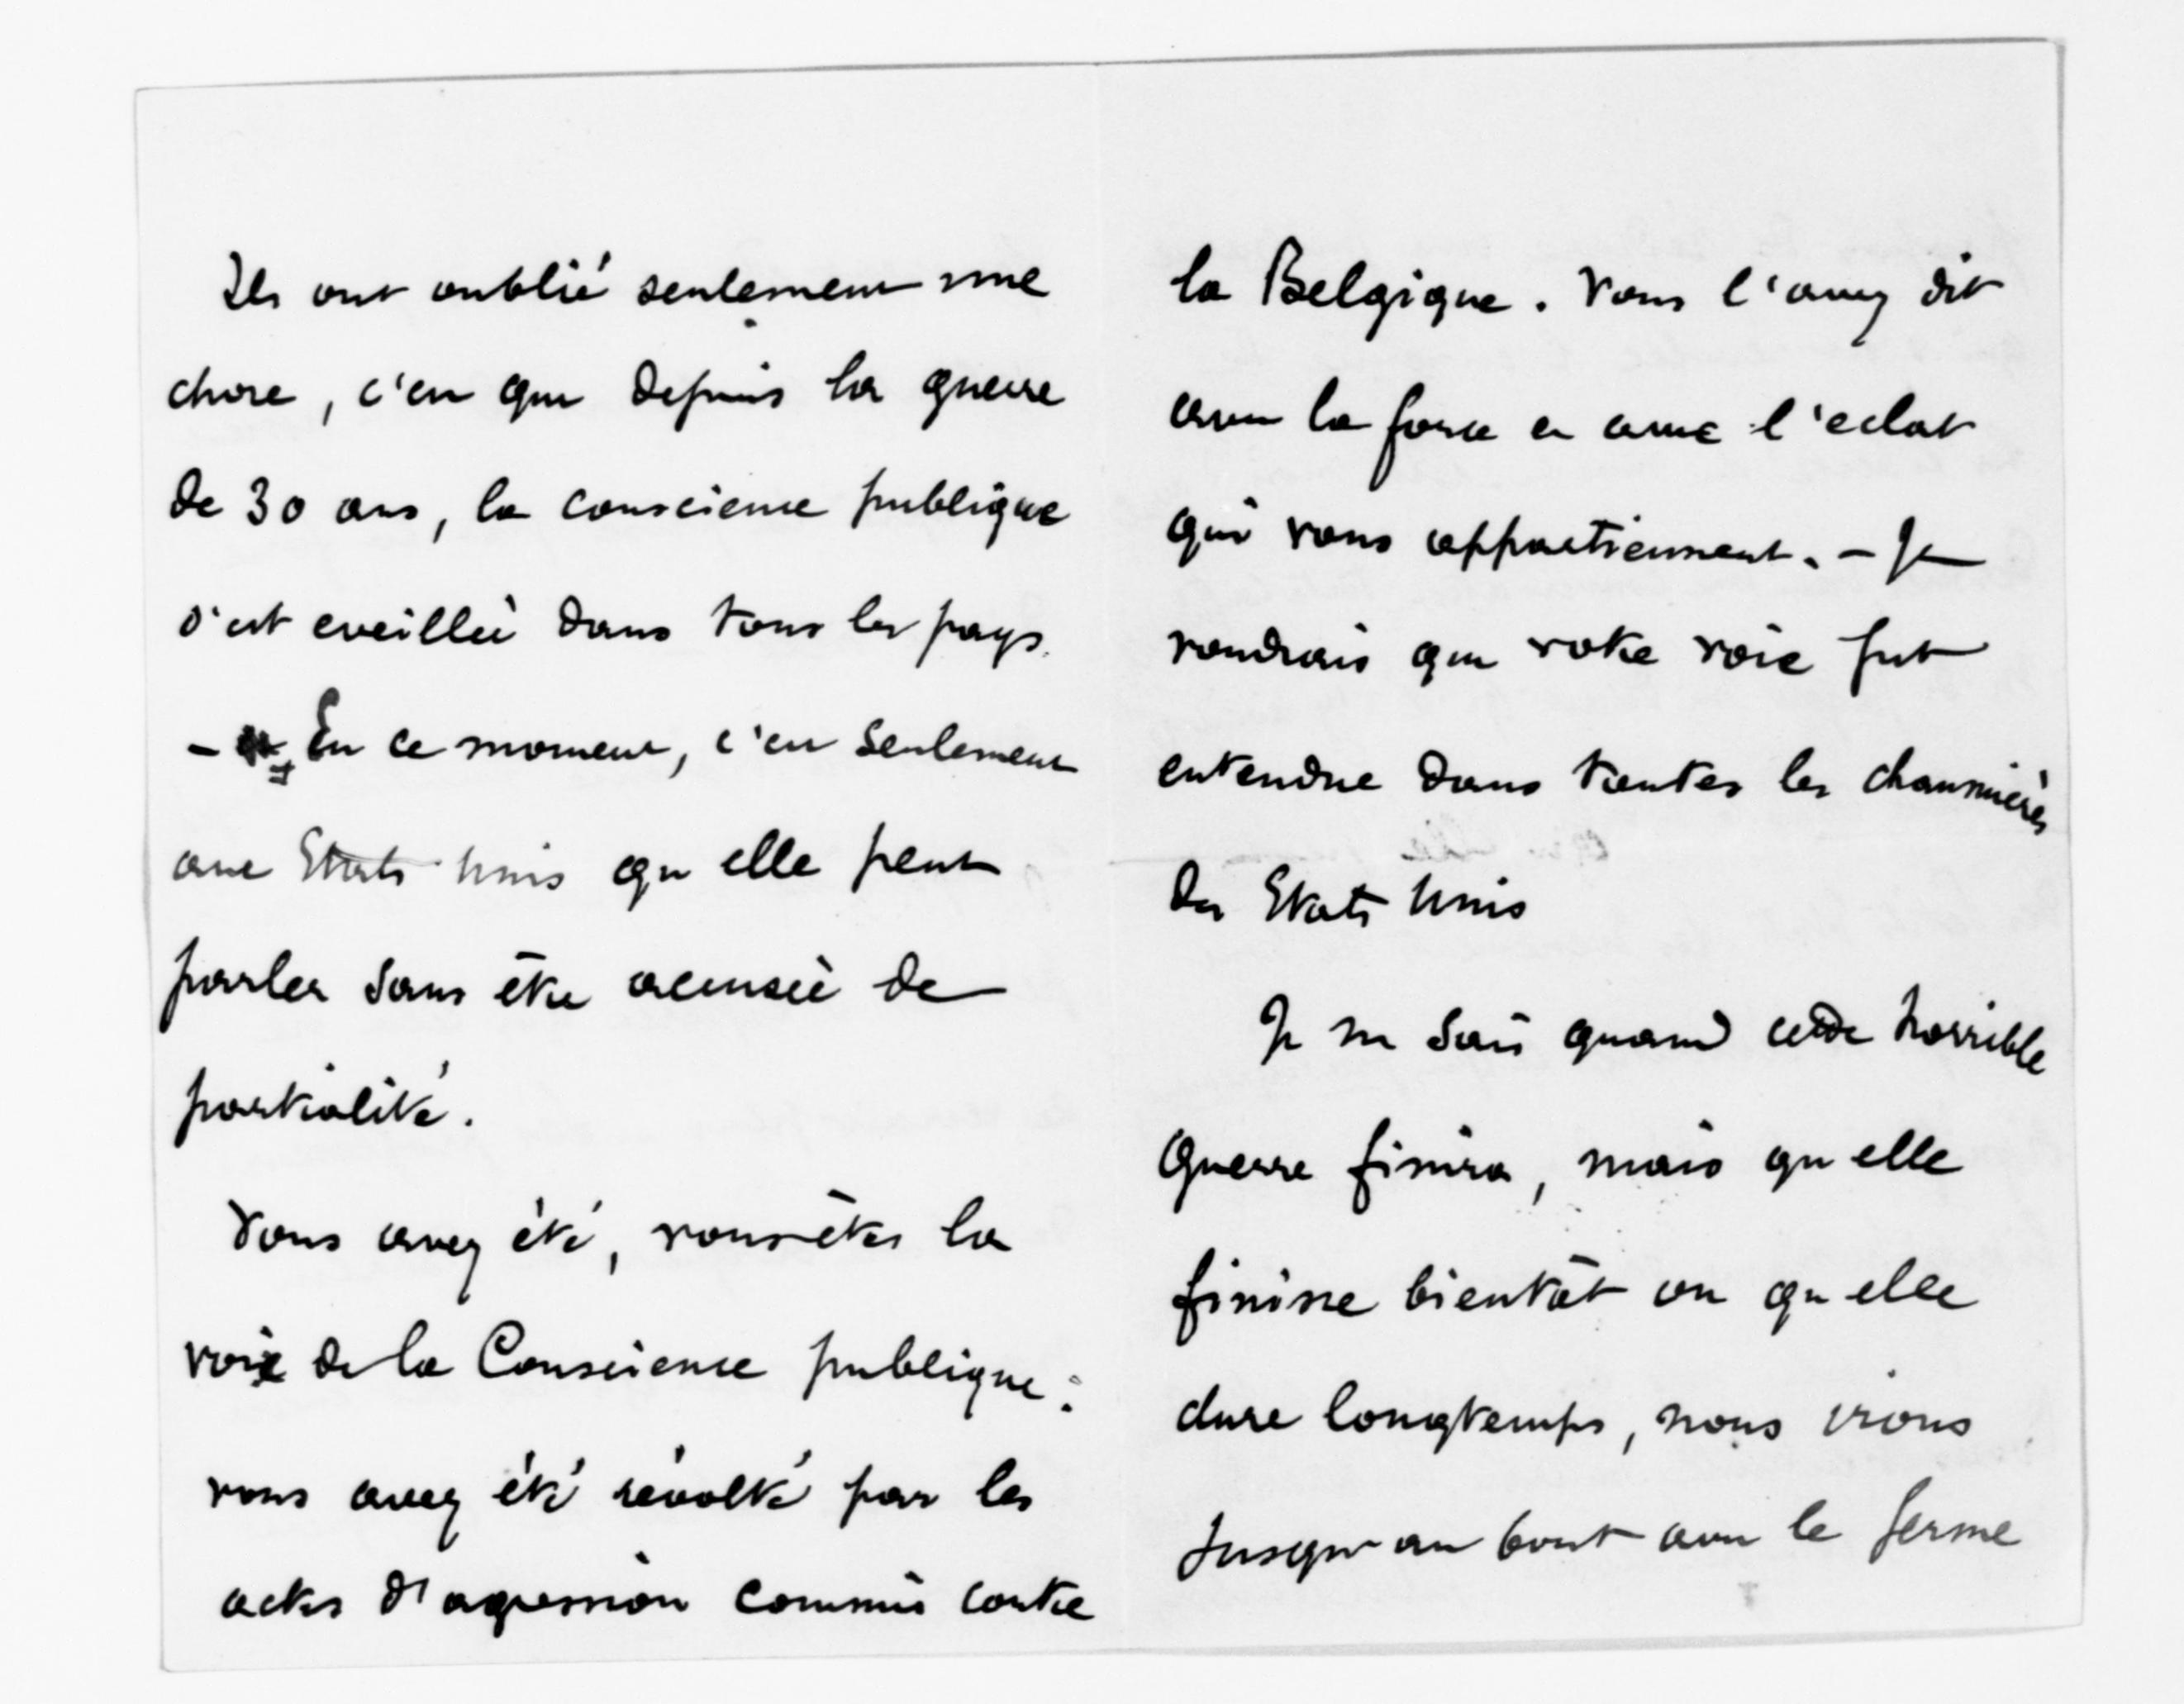 Ils ont oublié seulement une
chose, c'est que depuis la guerre
de 30 ans, la conscience publique
s'est eveillée dans tous les pays.
- En ce moment, c'est seulement
aux Etats Unis qu elle peut
parler sans être accusée de
partialité.
Vous avez été, vous êtes la
voix de la Conscience publique :
vous avez été révolté par les
actes d'agression commis contre
la Belgique. Vous l'avez dit
avec la force et avec l'eclat
qui vous appartiennent. - Je
voudrais que votre voix fut
entendue dans toutes les chaumières
des Etats Unis
Je ne sais quand cette horrible
guerre finira, mais qu elle
finisse bientôt ou qu elle
dure longtemps, nous irons
Jusqu'au bout avec le ferme